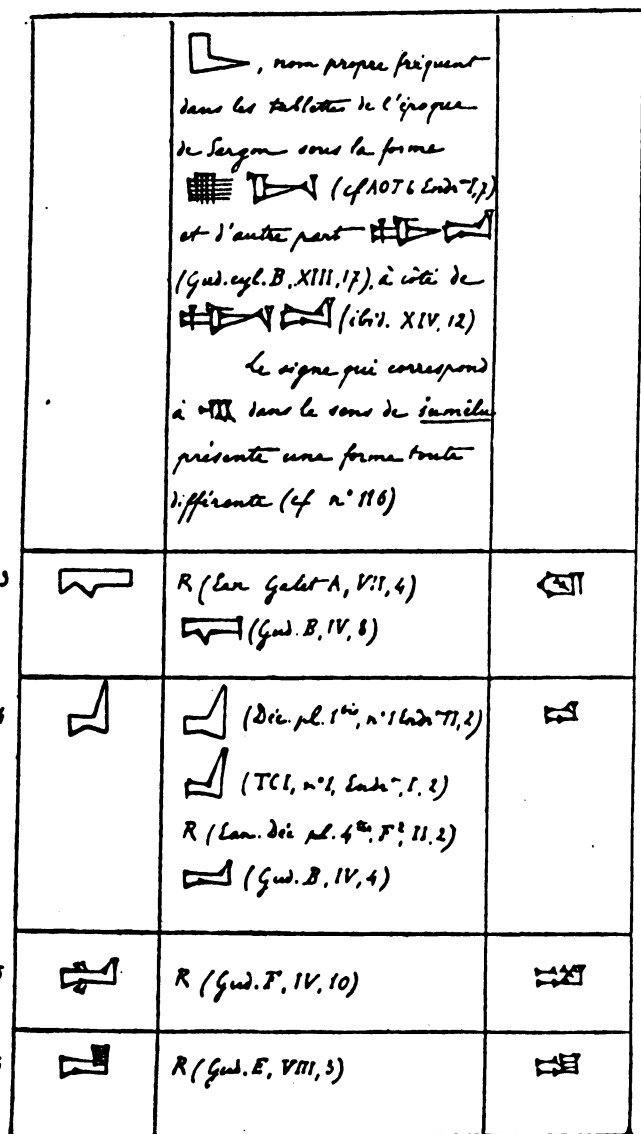 , nom propre fréquent
dans les tablettes de l'époque
de Sargon sous la forme
(cf AOT b Endr- I,7)
et d'autre part
(Gud. cyl. B, XIII, 17), à côté de
(ibid. XIV, 12)
Le signe qui correspond
à dans le sens de šumêlu
présente une forme toute
différente (cf n° 116)
R (Ean. Galet A, VII, 4)
(Gud. B, IV, 8)
(Déc. pl. 1 bis, n° 1 Endr- II, 2)
(TCI, n° 1, Endr-, I, 2)
R (Ean. Déc pl. 4, F², II, 2)
(Gud. B, IV, 4)
R (Gud. F, IV, 10)
R (Gud. E, VIII, 3)